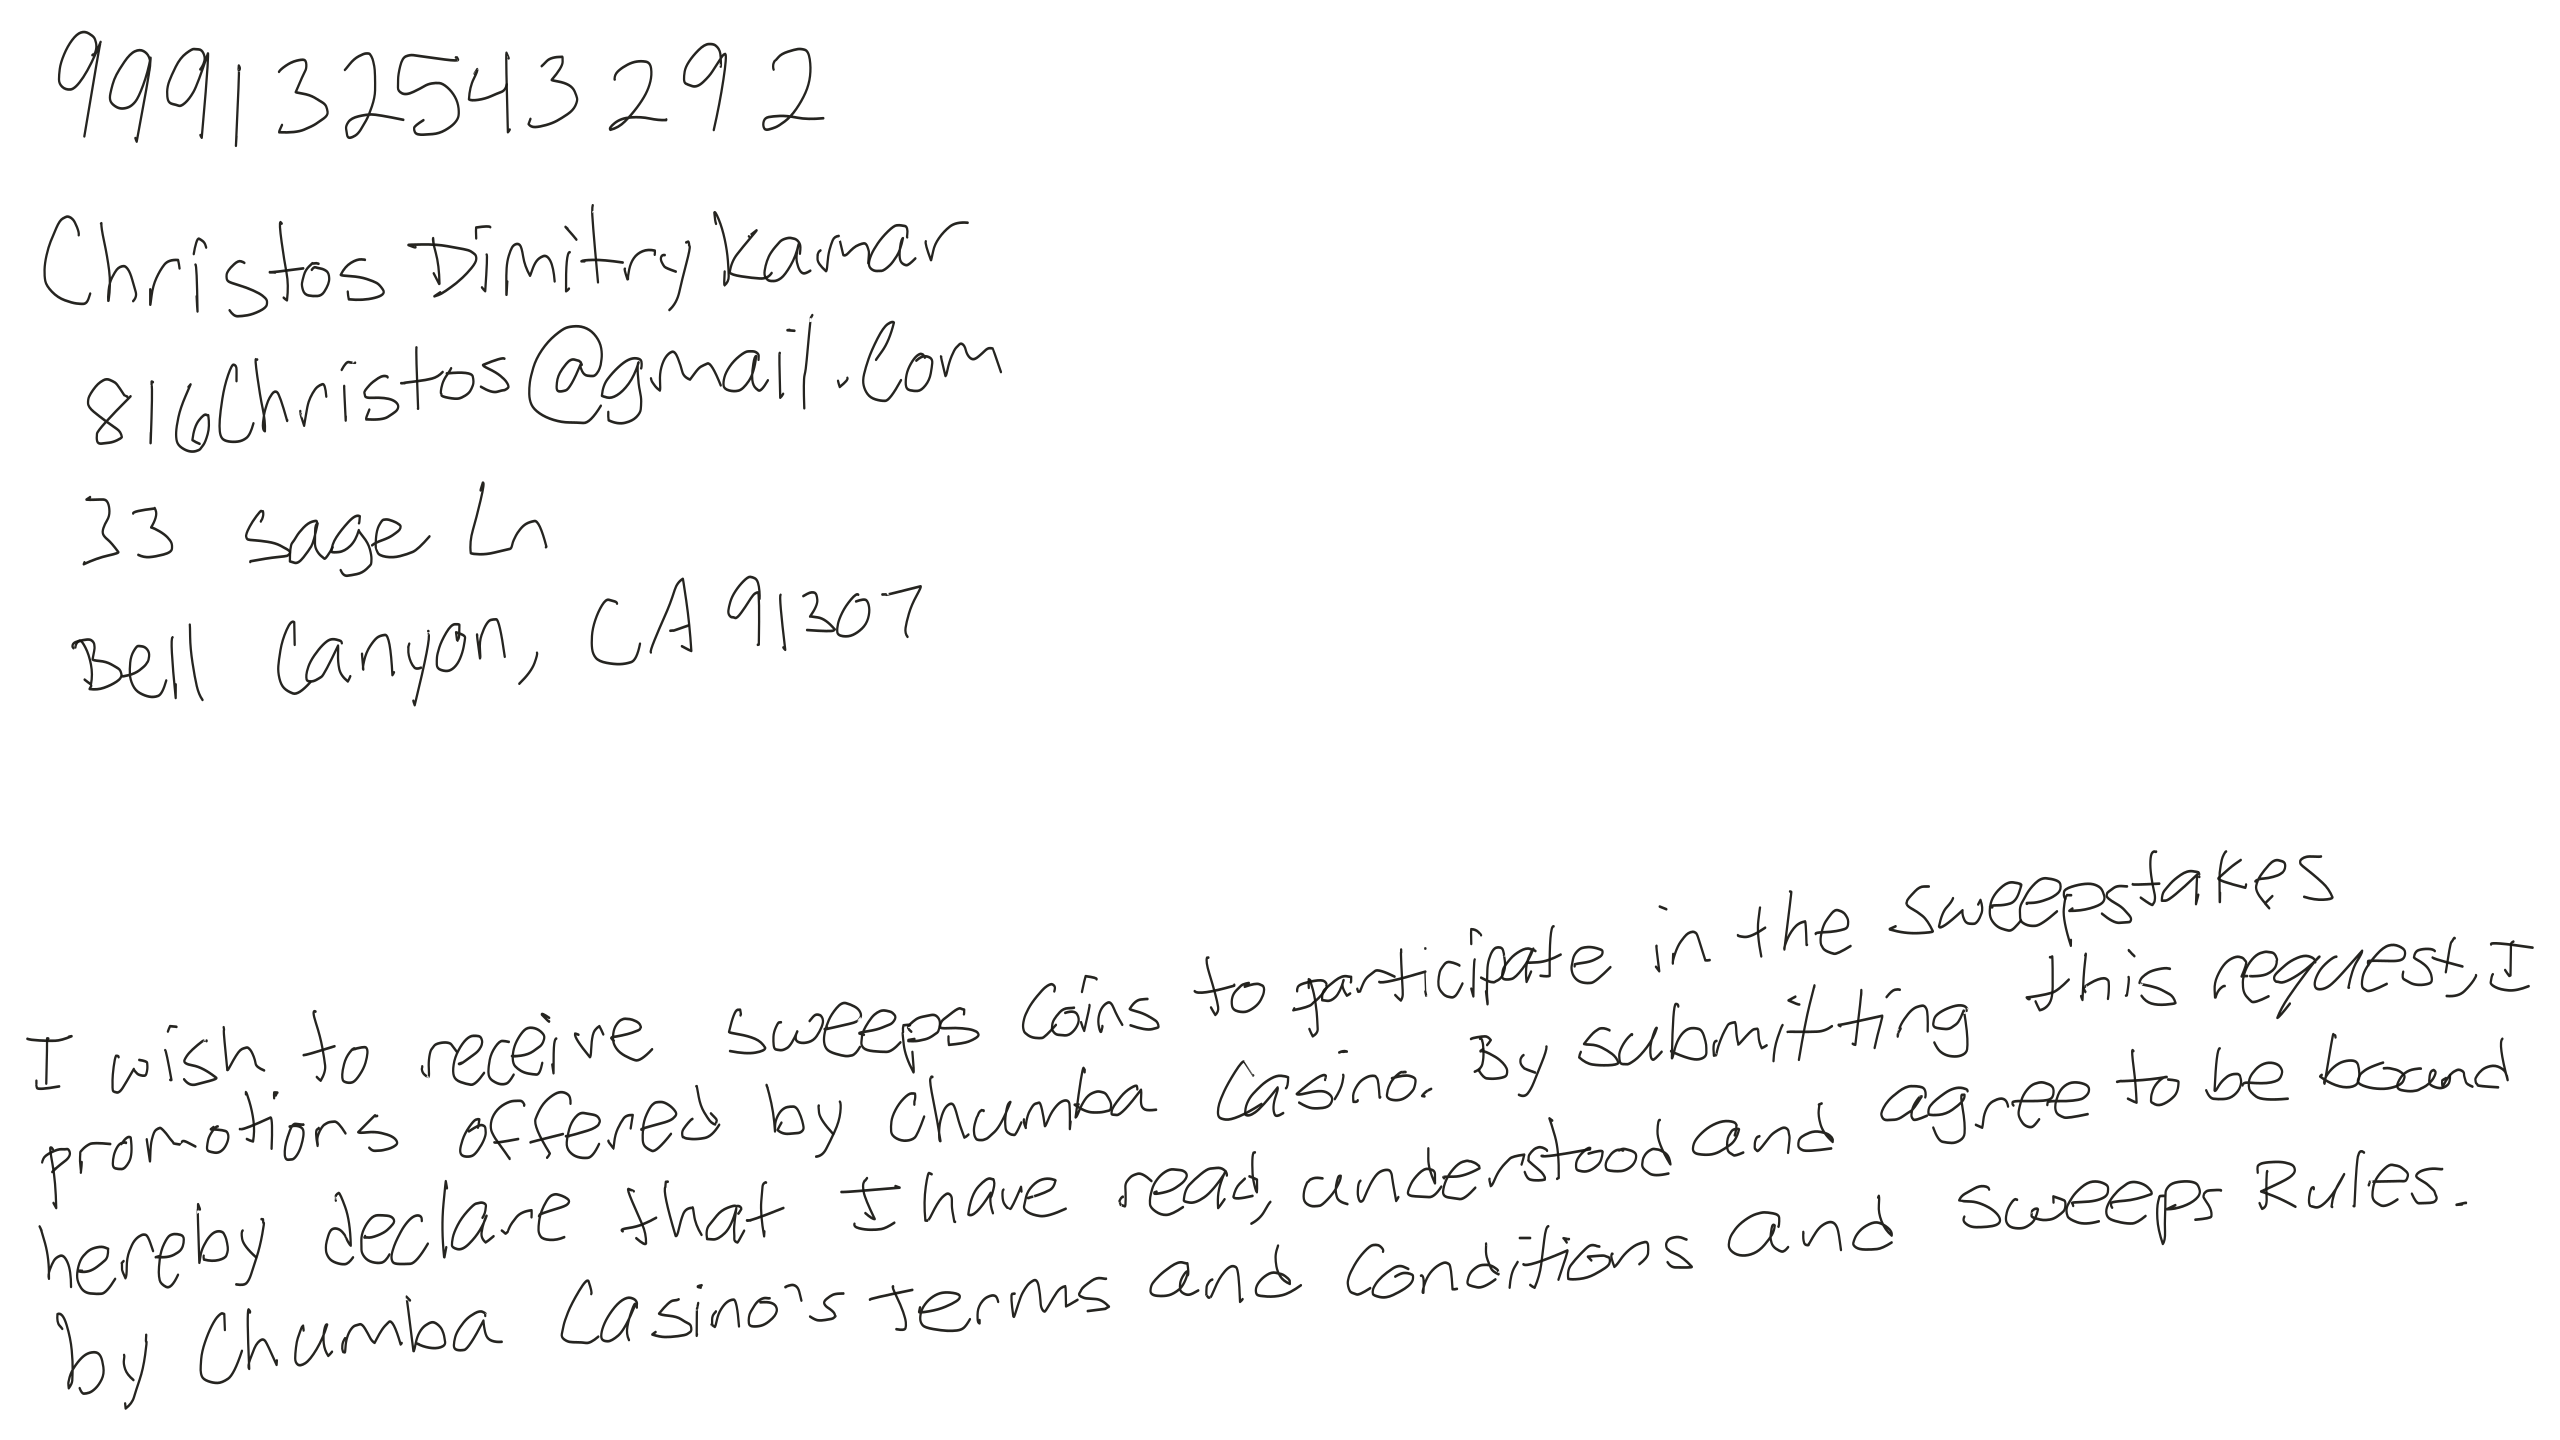 999132543292
Christos Dimitry Kamar
816Christos@gmail.com
33 sage Ln
Bell Canyon, CA 91307
I wish to receive sweeps Coins to participate in the sweepstakes
promotions offered by Chumba Casino. By submitting this request, I
hereby declare that I have read, understood and agree to be bound
by Chumba Casino's Terms and Conditions and sweeps Rules.